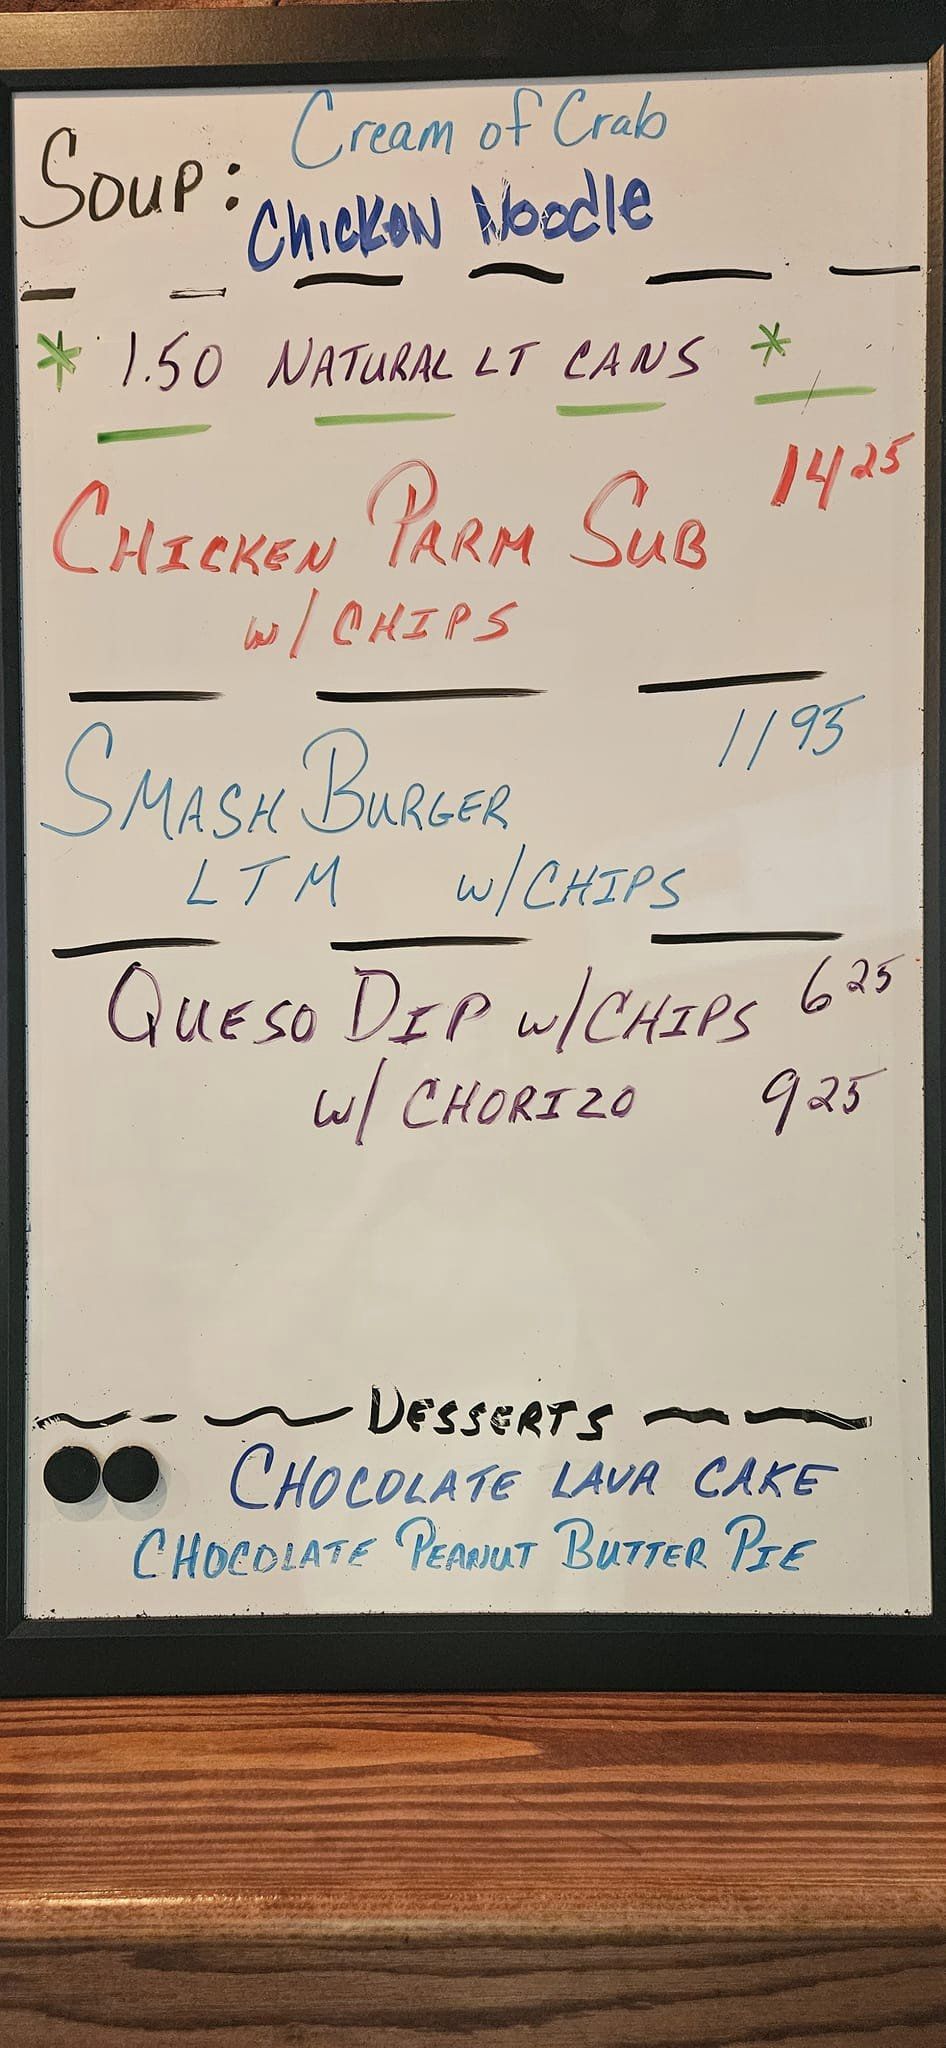 Soup: Cream of Crab
Chicken Noodle
* 1.50 NATURAL LT CANS *
CHICKEN PARM SUB 14 25
w/ CHIPS
SMASH BURGER 11 95
LTM w/ CHIPS
QUESO DIP w/ CHIPS 6 25
w/ CHORIZO 9 25
DESSERTS
CHOCOLATE LAVA CAKE
CHOCOLATE PEANUT BUTTER PIE